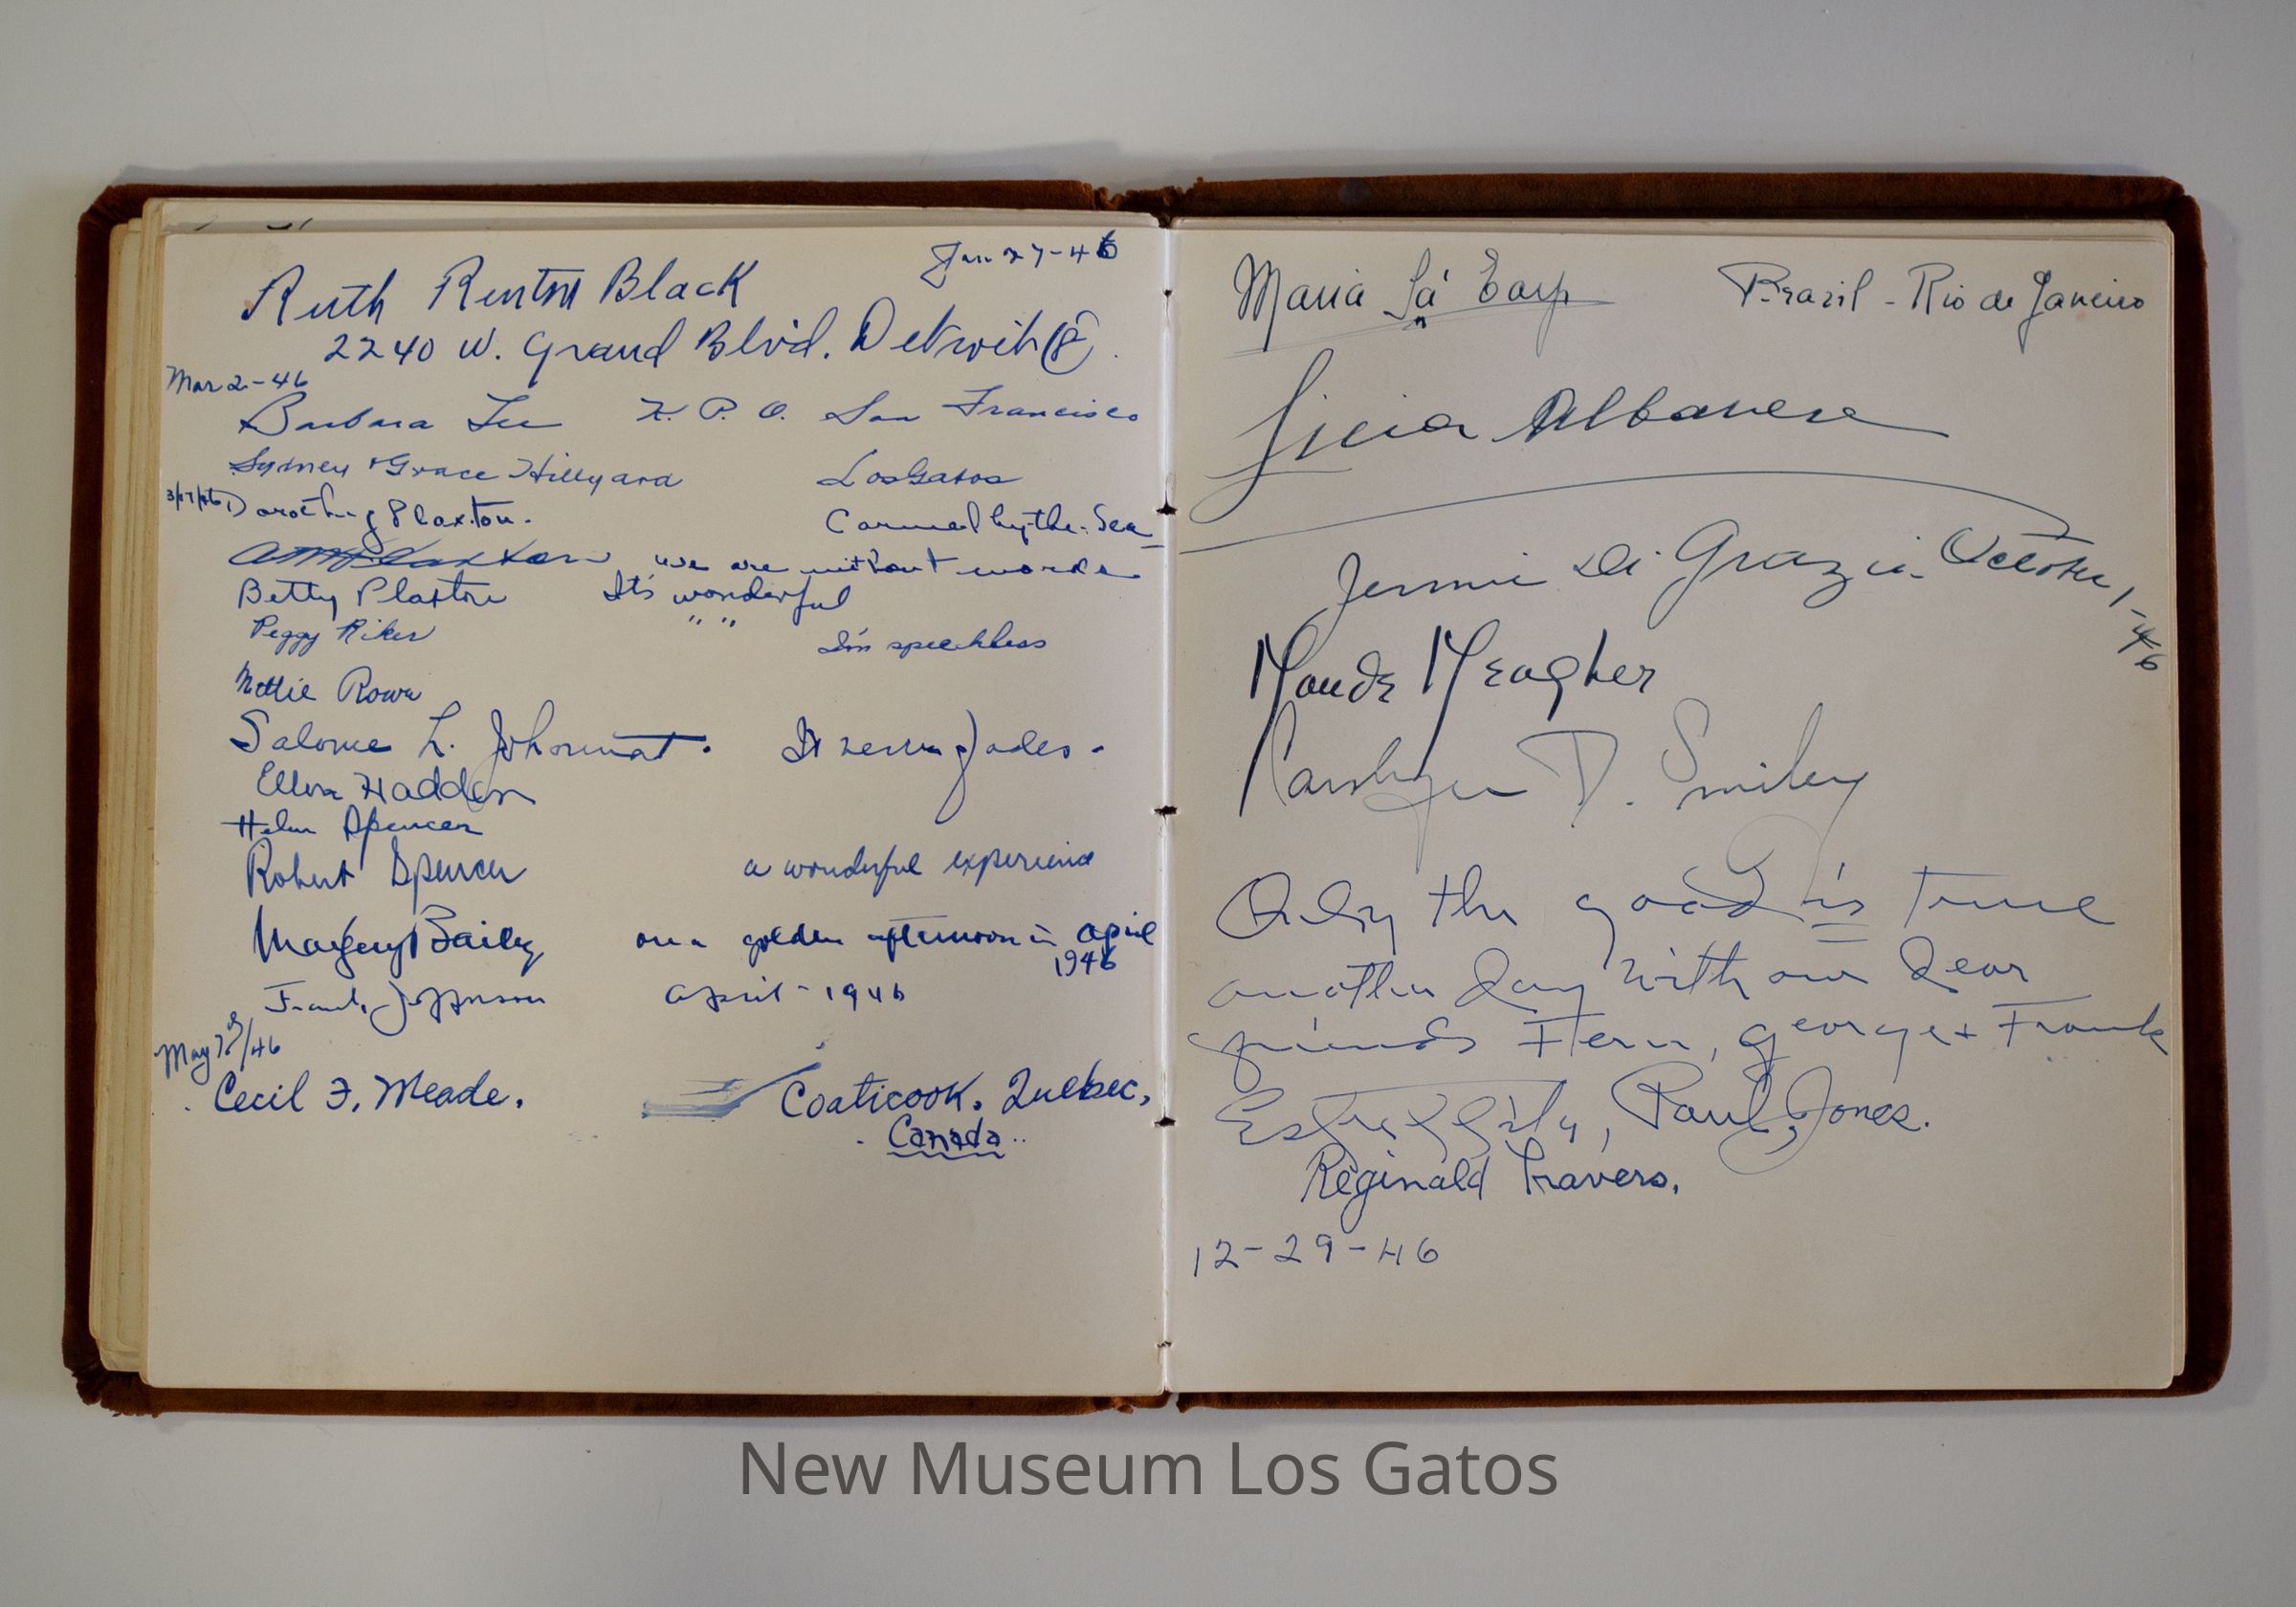 Jan 27-46
Ruth Renton Black
2240 W. Grand Blvd. Detroit (8)
Mar 2-46
Barbara Lee K. P. O. San Francisco
Sydney & Grace Hillyard Los Gatos
3/17/46 Dorothy Plaxton. Carmel by-the-Sea
Plaxton we are without words
Betty Plaxton It's wonderful
Peggy Riker " " I'm speechless
Nettie Rowe
Salome L. It never fades.
Haddon
Helen Spencer
Robert Spencer a wonderful experience
Margery Bailey on a golden afternoon in April
1946
Frank April - 1946
May /46
Cecil F. Meade. Coaticook, Quebec,
Canada
Maria Sá Earp Brazil - Rio de Janeiro
Licia Albanese
Jennie Di Grazia October 1-46
Maude Meagher
Carolyn D. Smiley
Only the good is true
another day with our dear
friends Fern, George & Frank
Paul Jones.
Reginald Travers.
12-29-46
New Museum Los Gatos